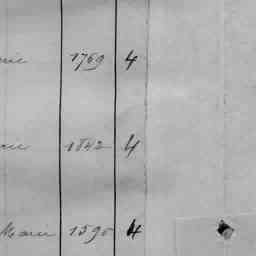 rie 1769 4
rie 1842 4
Marie 1590 4